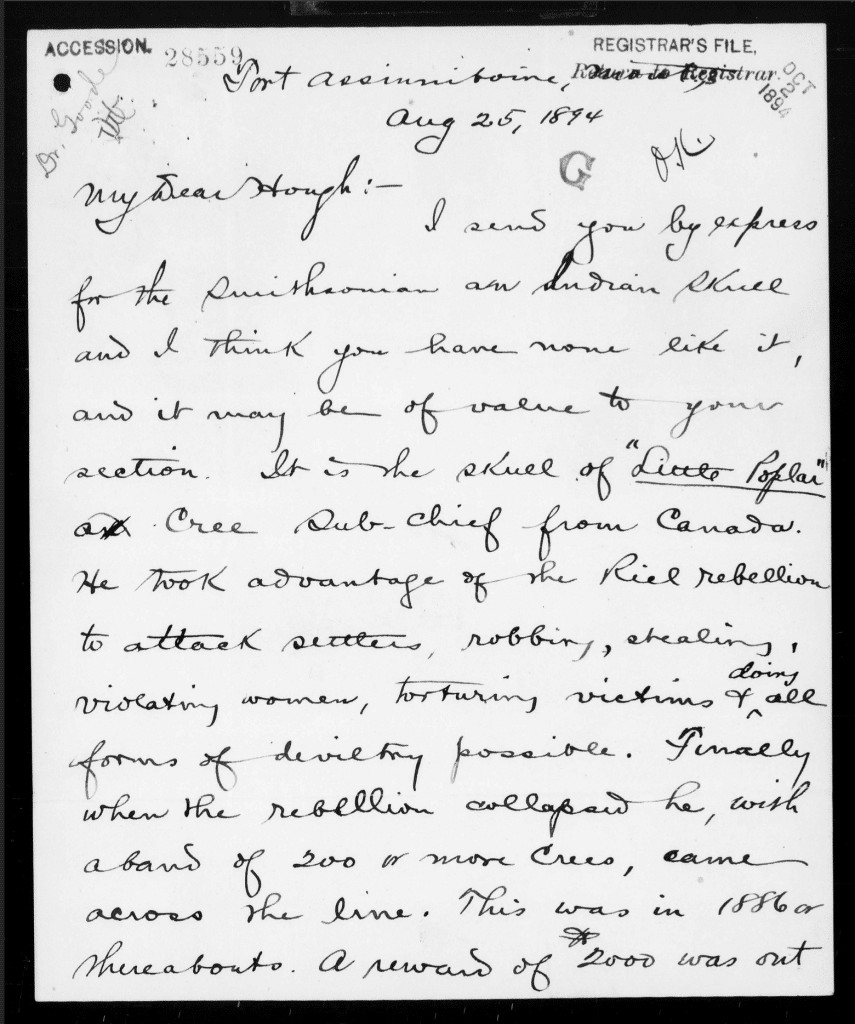 ACCESSION.
28559
REGISTRAR'S FILE,
Return to Registrar.
OCT
2
1894
Dr. Goode
Fort Assinniboine,
Aug 25, 1894
G
O.K.
My Dear Hough:—
I send you by express
for the Smithsonian an Indian skull
and I think you have none like it,
and it may be of value to your
section. It is the skull of "Little Poplar"
a Cree Sub-Chief from Canada.
He took advantage of the Riel rebellion
to attack settlers, robbing, stealing,
violating women, torturing victims & doing all
forms of deviltry possible. Finally
when the rebellion collapsed he, with
a band of 200 or more Crees, came
across the line. This was in 1886 or
thereabouts. A reward of $2000 was out